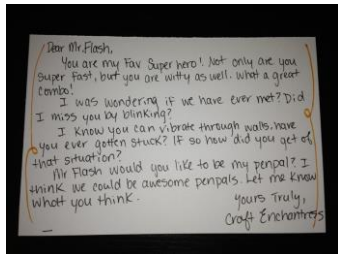 Dear Mr.Flash,
You are my Fav Super hero! Not only are you
super fast, but you are witty as well. What a great
combo!
I was wondering if we have ever met? Did
I miss you by blinking?
I know you can vibrate through walls, have
you ever gotten stuck? If so how did you get of
that situation?
Mr Flash would you like to be my penpal? I
think we could be awesome penpals. Let me know
whatt you think.
Yours Truly,
Craft Enchantress